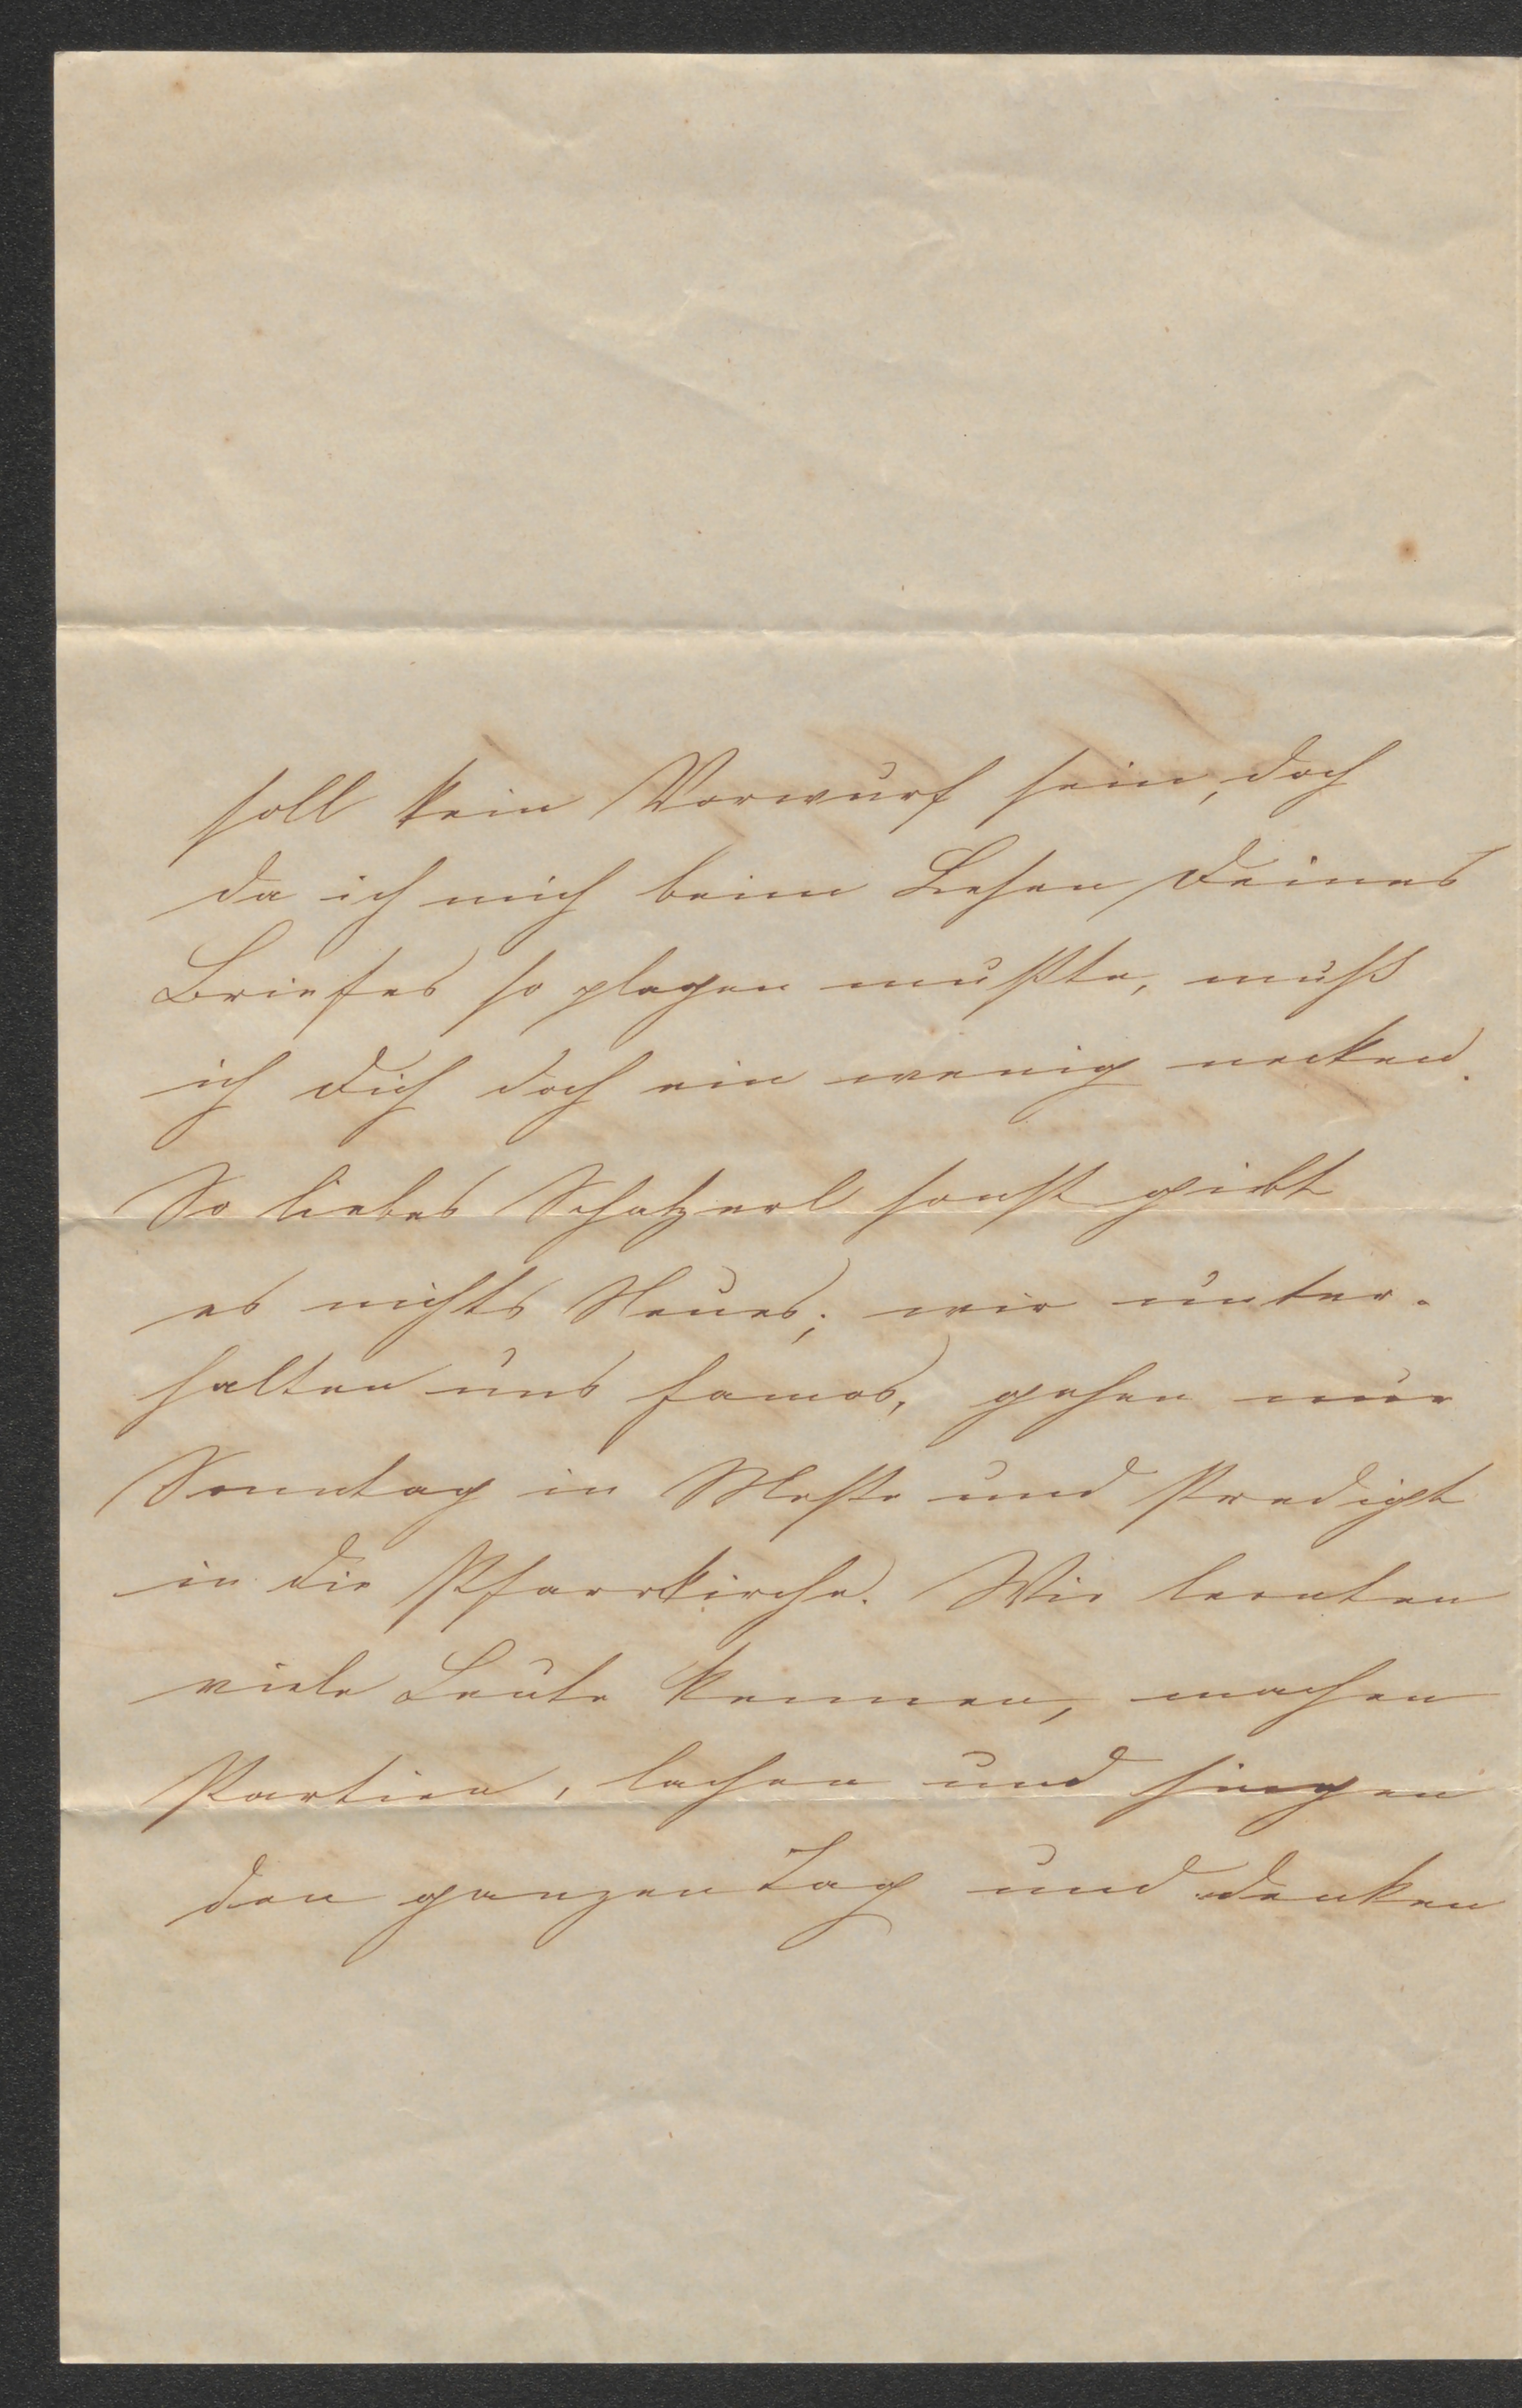 soll kein Vorwurf sein, doch
da ich mich beim Lesen Deines
Briefes so plagen mußte, muß
ich Dich doch ein wenig necken.
So liebes Schatzerl sonst giebt
es nichts Neues; wir unter-
halten uns famos, gehen nur
Sonntag in Messe und Predigt
in die Pfarrkirche. Wir lernten
viele Leute kennen, machen
Partien, lachen und singen
den ganzen Tag und denken